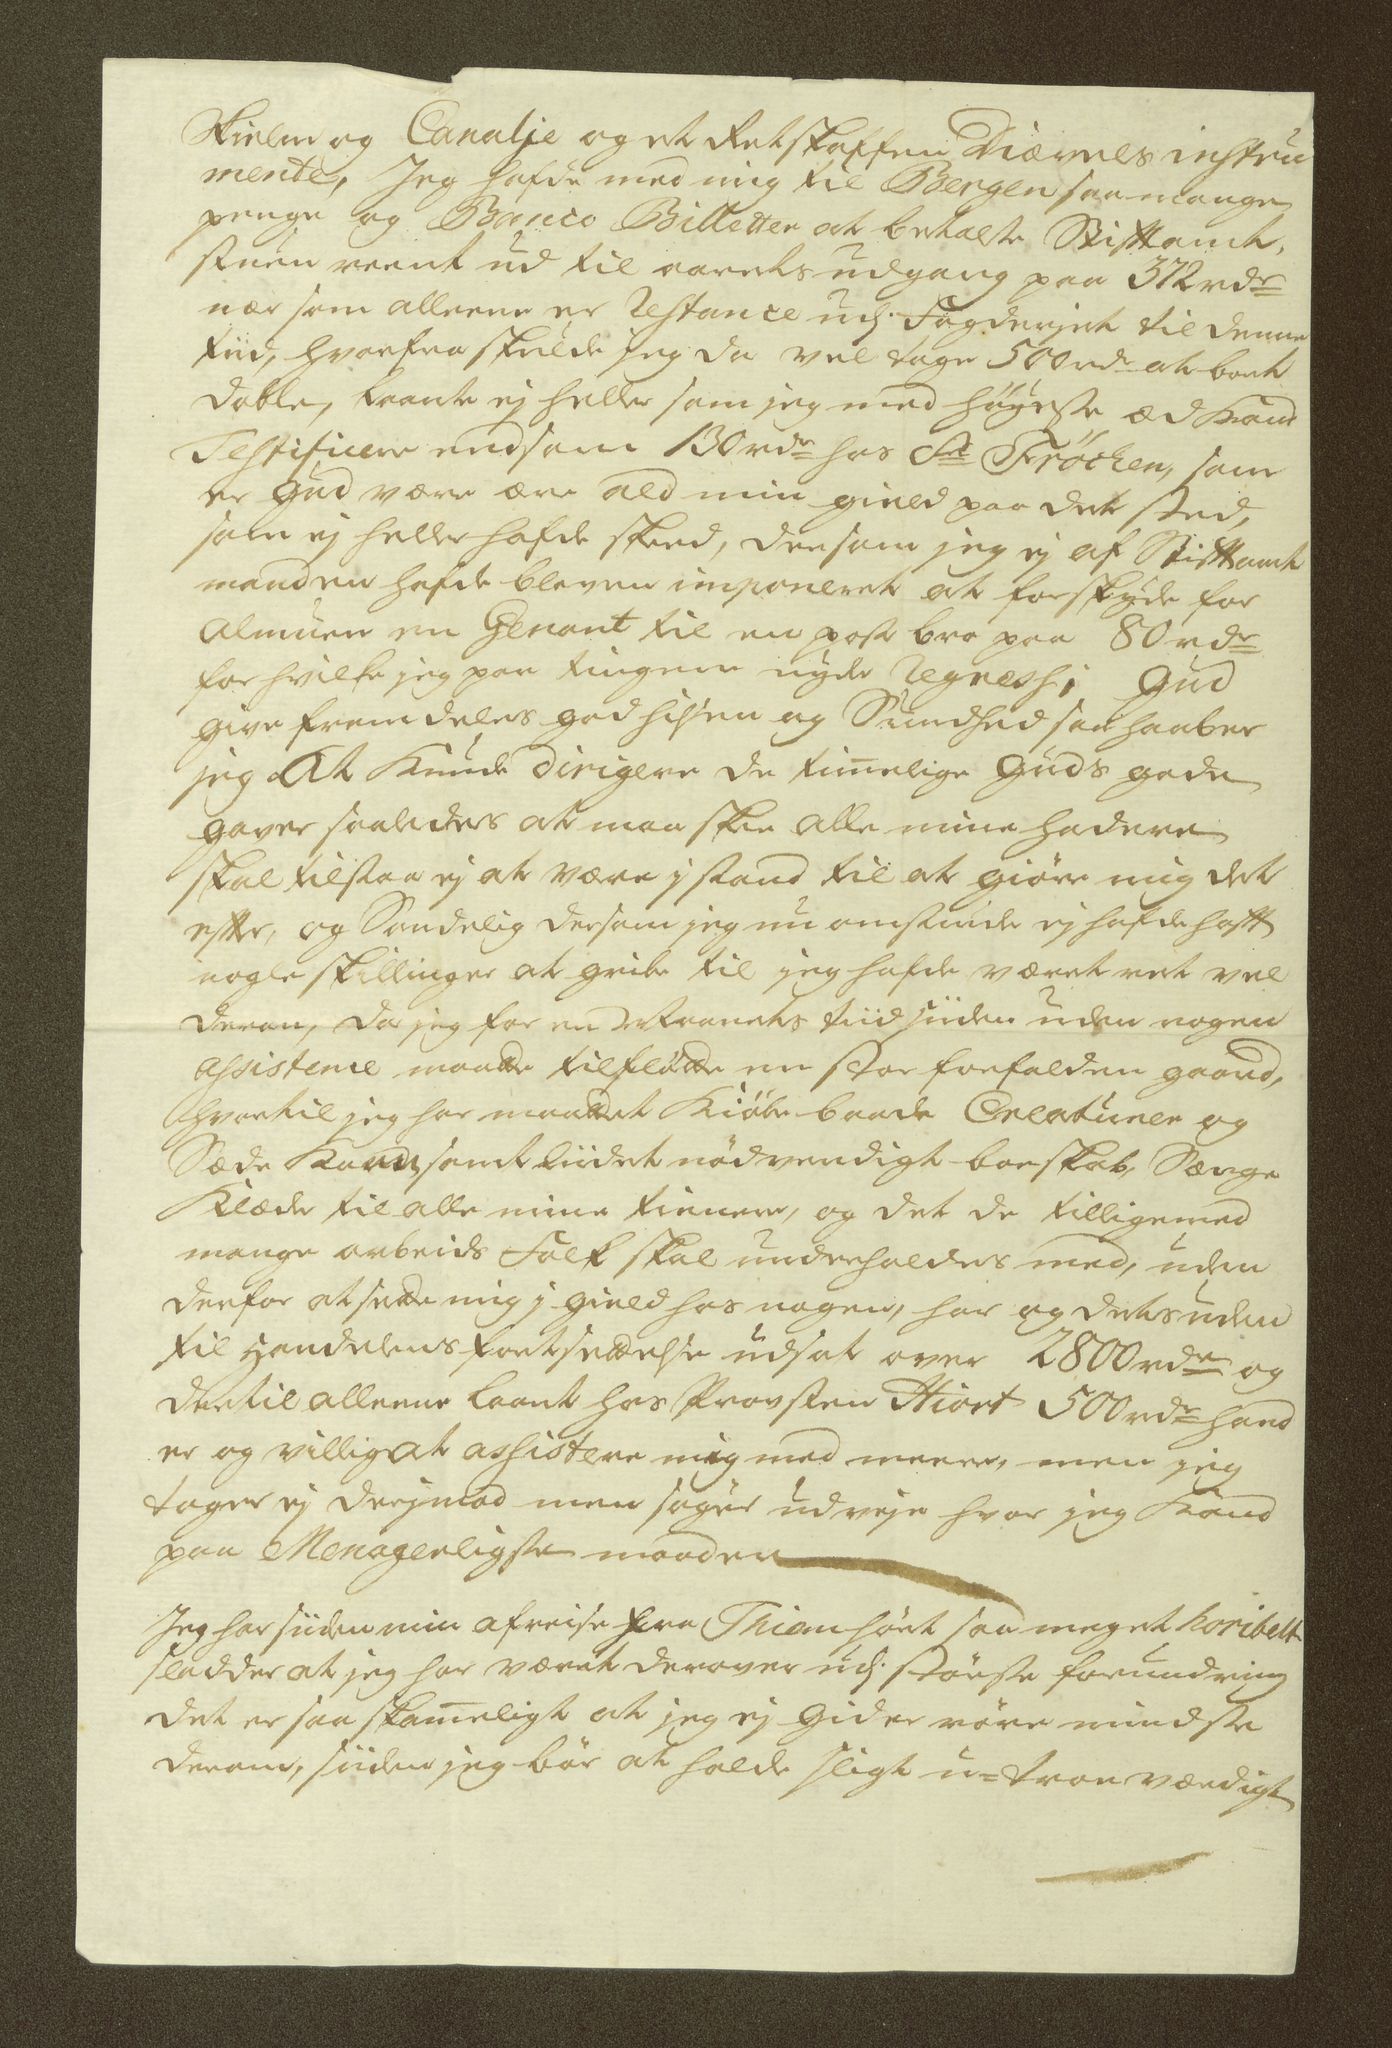 Skielm og Canalje og et Retskaffen Diævels instru
mente, Jeg hafde med mig til Bergen saa mange
penge og Banco Billetter at betale Stiftamt,
stuen reent ud til aarets udgang paa 372 rdr
nær som alleene er Restance udj. Fogderjet til denne
tiid, hvorfra skulde jeg da vel tage 500 rdr at bort
doble, laante ej heller som jeg med höyeste æd kand
Testificere endsom 130 rdr hos Sr Fröchen, som
er Gud være ære ald min gield paa det sted,
som ej heller hafde skeed, dersom jeg ej af Stiftamt
manden hafde bleven imponeret at forskyde for
Almuen en til en post bro paa 80 rdr
for hvilke jeg paa tingene nyde Regress; Gud
give fremdeles god hilsen og Sundhed saa haaber
jeg At kunde dirigere de timelige Guds gode
gaver saaledes at maa skee alle mine hadere
skal tilstaa ej at være j stand til at giöre mig det
efter, og Sandelig dersom jeg nu omstunde ej hafde hafft
nogle skillinger at gribe til jeg hafde været ret vel
deran, da jeg for en tiid siiden uden nogen
assistence maatte tilflötte en stor forfalden gaard,
hvortil jeg har maattet Kiöbe baade Creaturer og
Sæde Korn, samt liidet nödvendigt boeskab, Sænge
Klæder til alle mine tienere, og det de tilligemed
mange arbeids Folk skal underholdes med, uden
derfor at sette mig j gield hos nogen, har og desuden
til Handelens fortsettelse udsat over 2800 rdr og
dertil alleene laant hos Provsten Hiort 500 rdr hand
er og villig at assistere mig med meere, men jeg
tager ej derjmod men söger udveje hvor jeg kand
paa Menagerligste maader
Jeg har siiden min afreise fra Thiem hört saa meget horibelt
sladder at jeg har været derover udj. störste forundring
det er saa skammeligt at jeg ej gider röre mindste
derom, siiden jeg bör at holde sligt u=troe værdigt